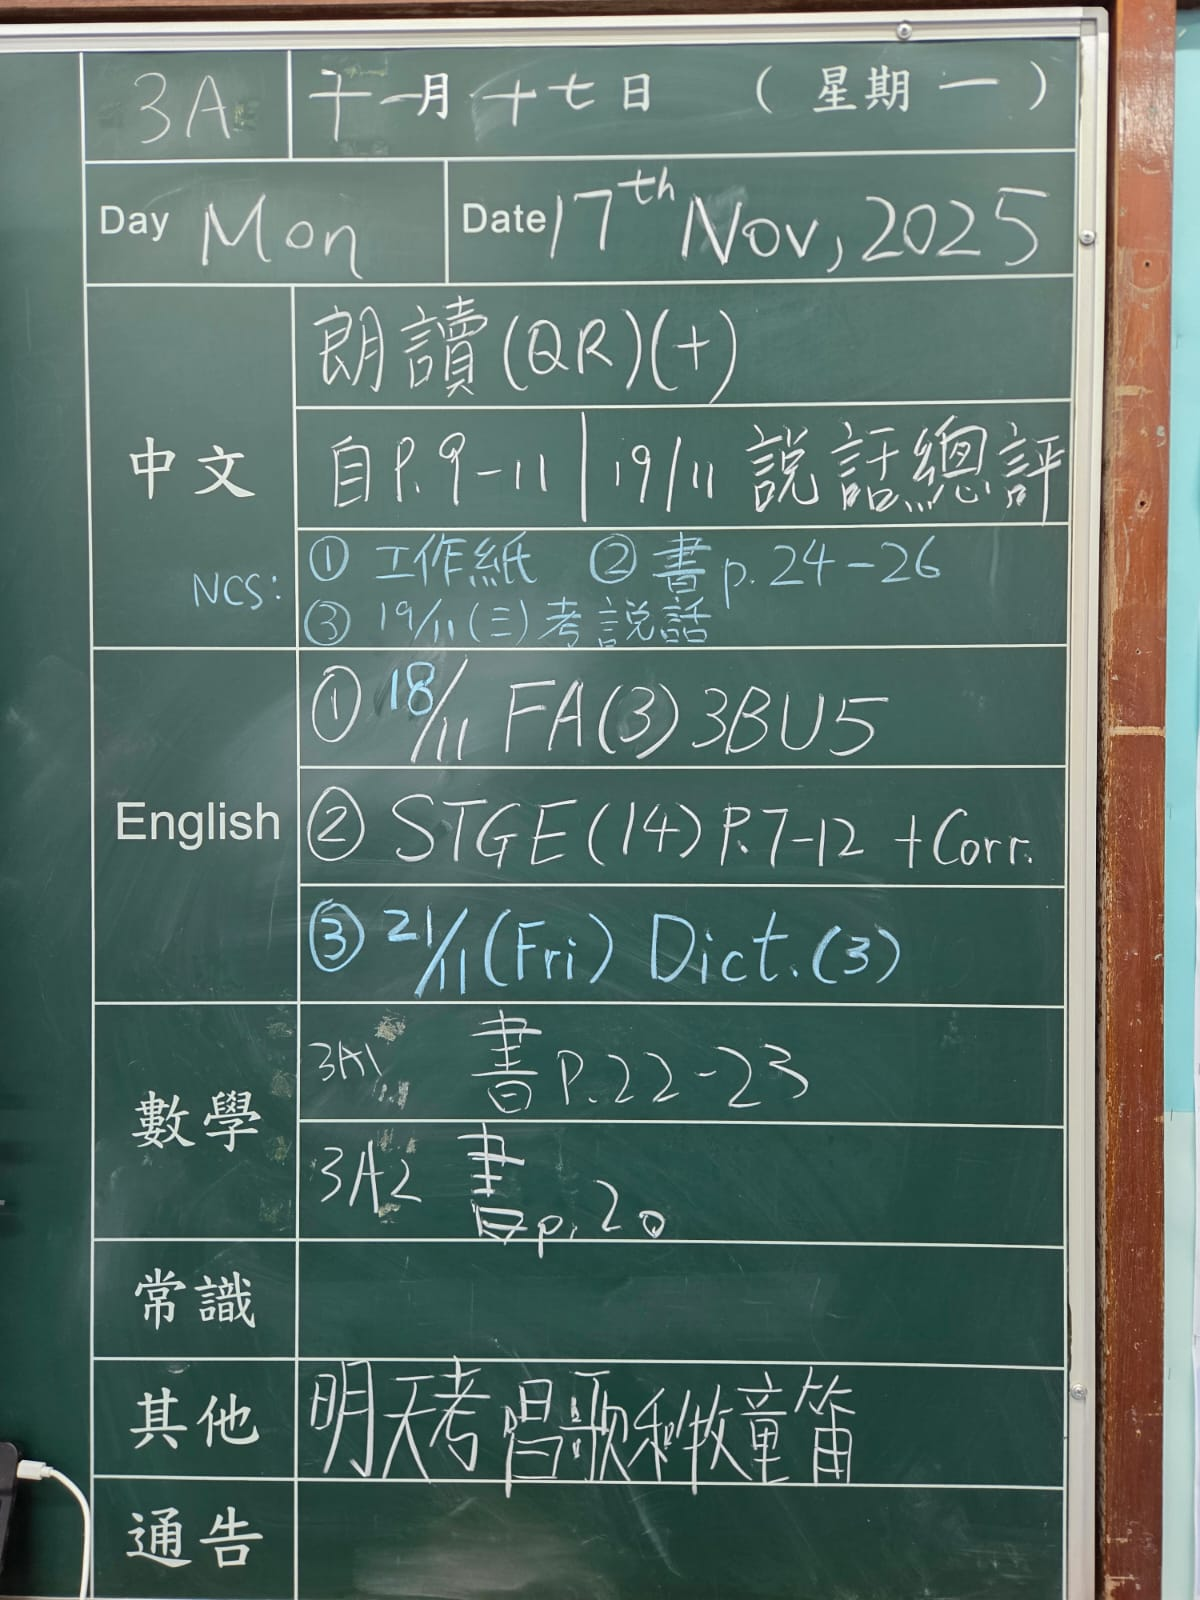 3A 十一月十七日 (星期一)
Day Mon Date 17th Nov, 2025
中文
朗讀(QR)(+)
自P.9-11 | 19/11 説話總評
NCS: ① 工作紙 ② 書p.24-26
③ 19/11(三)考説話
English
① 18/11 FA(3)3BU5
② STGE(14)P.7-12 +Corr.
③ 21/11(Fri) Dict.(3)
數學
3A1 書P.22-23
3A2 書p.20
常識
其他 明天考唱歌和牧童笛
通告